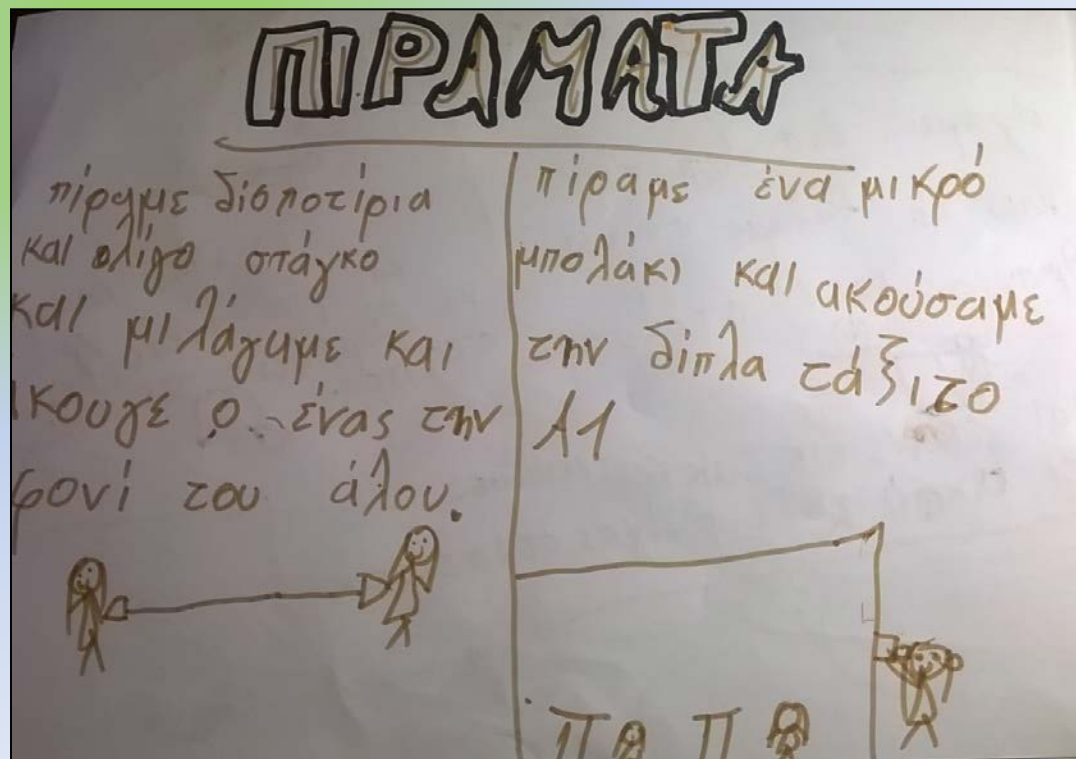 ΠΙΡΑΜΑΤΑ
πίραμε δίοποτίρια
και ολίγο σπάγκο
και μιλάγαμε και
ακουγε ο ένας την
φονί του άλου.
πίραμε ένα μικρό
μπολάκι και ακούσαμε
την δίπλα τάξι το
Α1